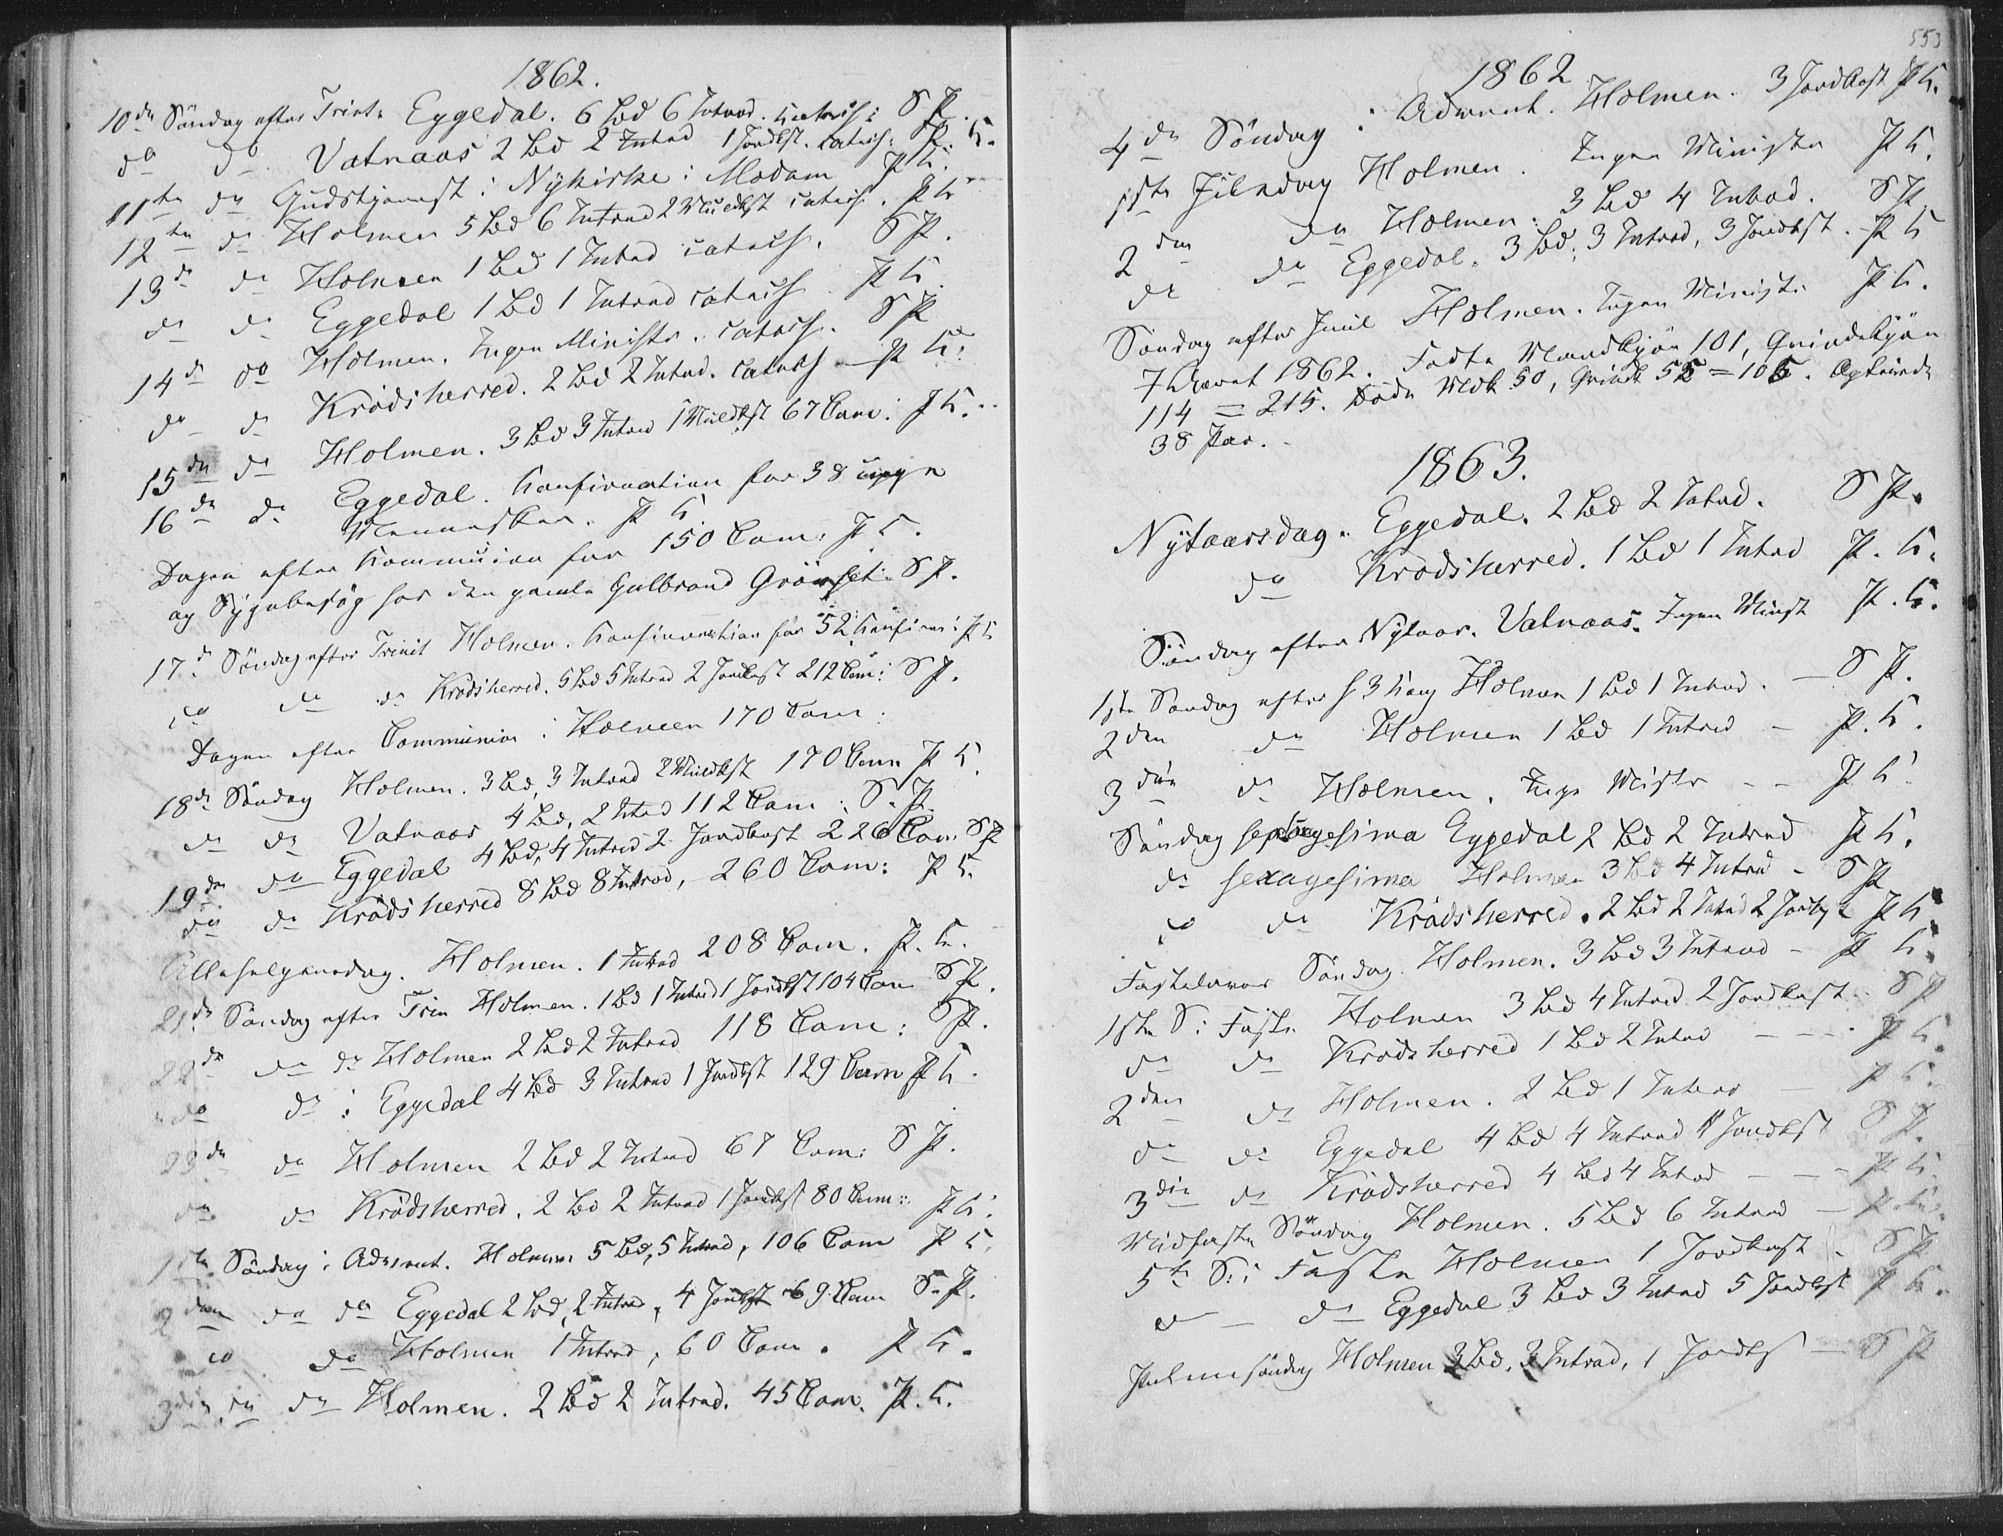 1862.
10de Søndag efter Trint. Eggedal. 6 Bd 6 Introd. Catech: S P.
do do. Vatnaas 2 Bd 2 Introd 1 Jordkst. catech: S P. K.
11te do Gudstjenest i Nykirke i Modum P K.
12te do Holmen 5 Bd 6 Introd 2 Muldkst catech. P K
13de do Holmen 1 Bd 1 Introd catech. S P.
do do Eggedal 1 Bd 1 Introd catech P K.
14de do Holmen. Ingen Ministr. catech. S P
do do Krødsherred. 2 Bd 2 Introd. catech P K.
15de do Holmen. 3 Bd 3 Introd 1 Muldkst 67 Com: P K.
16de do Eggedal. Konfirmation for 38 unge
Mennesker. P K.
Dagen efter Kommunion for 150 Com. P K.
og Sygebesøg hos den gamle Gulbrand S P.
17de Søndag efter Trinit Holmen. Konfirmation for 52 Konfirm: P K
do do do Krødsherred. 5 Bd 5 Introd 2 Jordkast 212 Com: S P.
Dagen efter Communion i Holmen 170 Com:
18de Søndag Holmen. 3 Bd, 3 Introd 2 Muldkst 170 Com P K.
do do Vatnaas 4 Bd, 2 Intrd 112 Com: S. P.
19de do Eggedal 4 Bd, 4 Introd 2 Jordkast 226 Com. S P
do do Krødsherred 8 Bd 8 Introd, 260 Com: P K.
Allehelgensdag. Holmen. 1 Introd 208 Com. P. K.
21de Søndag efter Trin Holmen. 1 Bd 1 Introd 1 Jordkst 104 Com S P.
22de do do Holmen 2 Bd 2 Introd 118 Com: S P.
do do i Eggedal 4 Bd 3 Introd 1 Jordkst 129 Com P K.
23de do Holmen 2 Bd 2 Introd 67 Com: S P.
do do Krødsherred. 2 Bd 2 Introd 1 Jordkst 80 Com: P K.
1ste Søndag i Advent. Holmen 5 Bd, 5 Introd, 106 Com P K.
2den do do Eggedal 2 Bd, 2 Introd, 4 Jordkst 69 Com S. P.
do do Holmen 1 Introd, 60 Com. P K.
3die do do Holmen. 2 Bd 2 Introd. 45 Com. P. K.
553
1862
4de Søndag i Advent. Holmen. 3 Jordkast P K.
1ste Juledag Holmen. Ingen Ministr P K.
2den do Holmen. 3 Bd 4 Introd. S P
do do Eggedal. 3 Bd, 3 Introd, 3 Jordkst. P K
Søndag efter Juul Holmen. Ingen Ministr P K.
1862. Fødte Mandkjøn 101, Qvindekjøn
114 = 215. Døde Mdk 50, Qvindk 55 = 105. Ægteviede
38 Par.
1863.
Nytaarsdag. Eggedal. 2 Bd 2 Introd. S P.
do Krødsherred. 1 Bd 1 Introd P. K.
Søndag efter Nytaar. Vatnaas. Ingen Minist P. K.
1ste Søndag efter H 3 Kong Holmen 1 Bd 1 Introd. S P.
2den do Holmen 1 Bd 1 Introd P. K.
3die do Holmen. Inge Mistr P K
Søndag septuagesima Eggedal 2 Bd 2 Introd P K.
do sexagesima Holmen 3 Bd 4 Introd S P
do do Krødsherred. 2 Bd 2 Introd 2 Jordkst P K.
Fastelavns Søndag. Holmen. 3 Bd 3 Introd P K.
1ste S: Faste Holmen 3 Bd 4 Introd 2 Jordkast S P
do do Krødsherred 1 Bd 2 Introd P K.
2den do Holmen. 2 Bd 1 Introd P K.
do do Eggedal 4 Bd 4 Introd 1 Jordkst S P.
3die do Krødsherred 4 Bd 4 Introd P. K.
Midfaste Søndag Holmen. 5 Bd 6 Introd P. K.
5te S: i Faste Holmen 1 Jordkast S P
do do Eggedal 3 Bd 3 Introd 5 Jordkst P K.
Palmesøndag Holmen 3 Bd, 3 Introd, 1 Jordkst S P